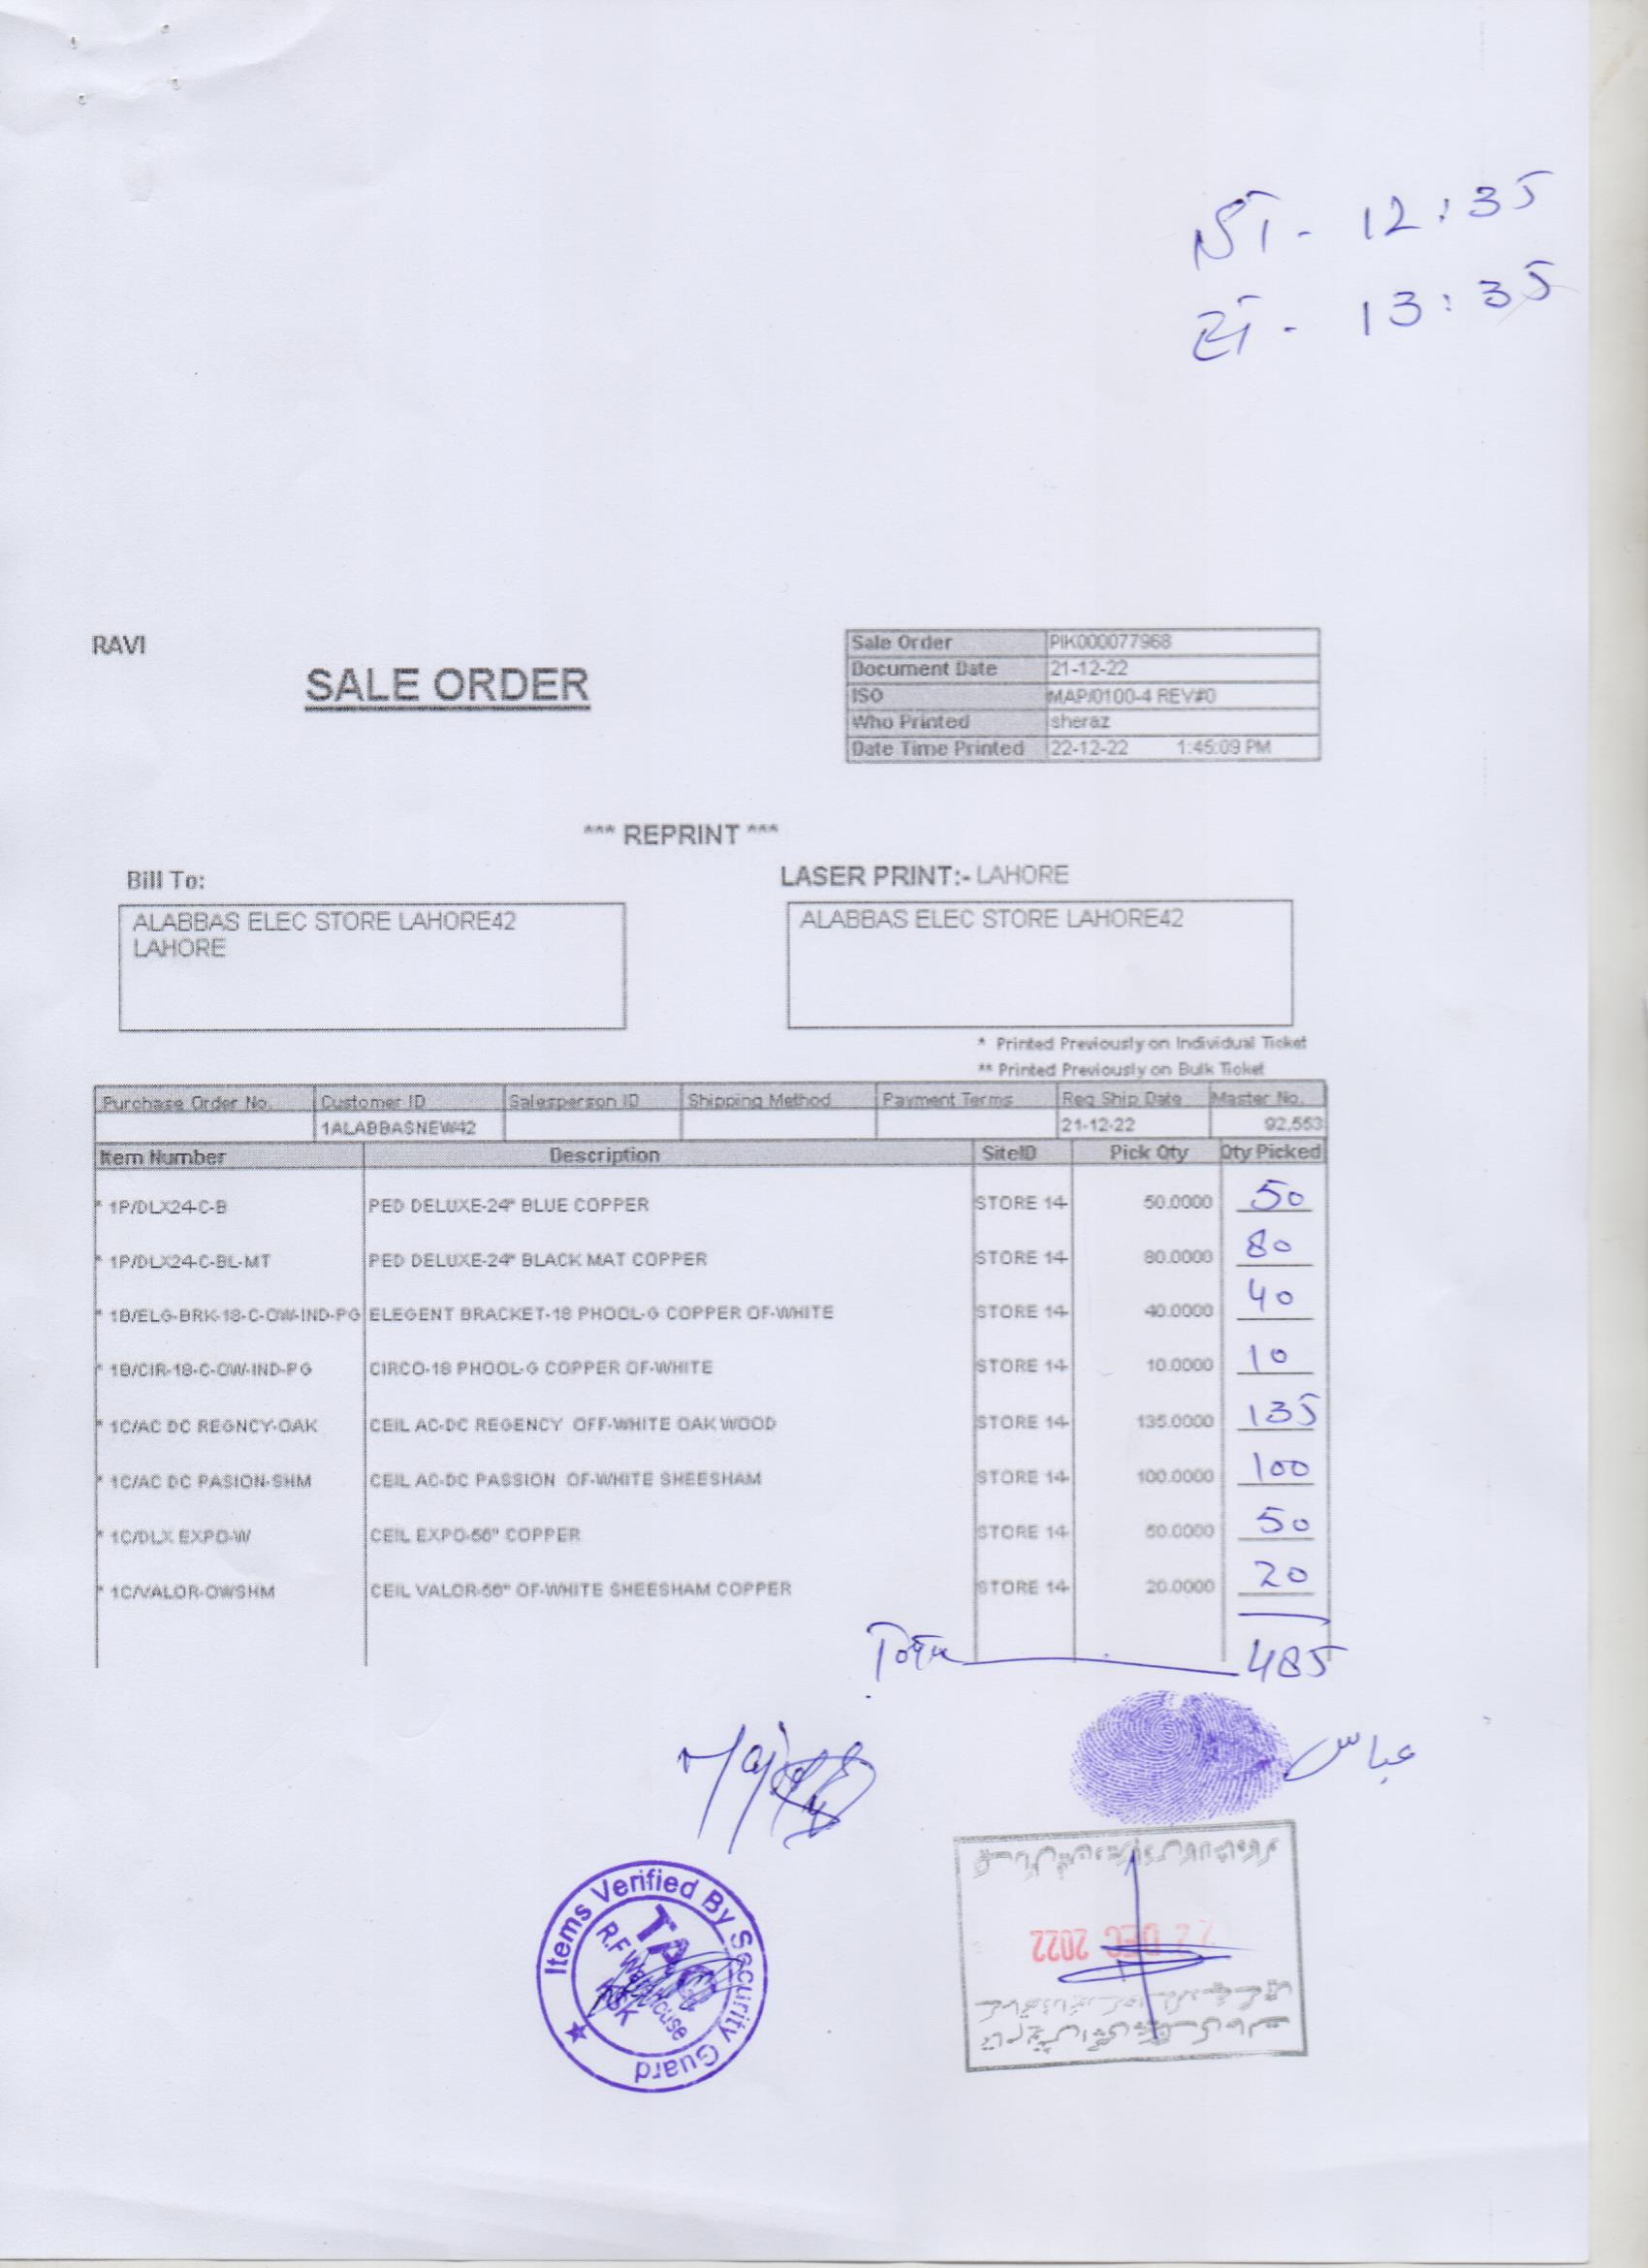 ST - 12:35
ET - 13:35
RAVI
SALE ORDER
Sale Order PIK000077968
Document Date 21-12-22
ISO MAP/0100-4 REV#0
Who Printed sheraz
Date Time Printed 22-12-22 1:45:09 PM
*** REPRINT ***
Bill To:
LASER PRINT:- LAHORE
ALABBAS ELEC STORE LAHORE42
LAHORE
ALABBAS ELEC STORE LAHORE42
* Printed Previously on Individual Ticket
** Printed Previously on Bulk Ticket
Purchase Order No. Customer ID Salesperson ID Shipping Method Payment Terms Req Ship Date Master No.
1ALABBASNEW42 21-12-22 92,553
Item Number Description SiteID Pick Qty Qty Picked
* 1P/DLX24-C-B PED DELUXE-24" BLUE COPPER STORE 14 50.0000 50
* 1P/DLX24-C-BL-MT PED DELUXE-24" BLACK MAT COPPER STORE 14 80.0000 80
* 1B/ELG-BRK-18-C-OW-IND-PG ELEGENT BRACKET-18 PHOOL-G COPPER OF-WHITE STORE 14 40.0000 40
* 1B/CIR-18-C-OW-IND-PG CIRCO-18 PHOOL-G COPPER OF-WHITE STORE 14 10.0000 10
* 1C/AC DC REGNCY-OAK CEIL AC-DC REGENCY OFF-WHITE OAK WOOD STORE 14 135.0000 135
* 1C/AC DC PASION-SHM CEIL AC-DC PASSION OF-WHITE SHEESHAM STORE 14 100.0000 100
* 1C/DLX EXPO-W CEIL EXPO-56" COPPER STORE 14 50.0000 50
* 1C/VALOR-OWSHM CEIL VALOR-56" OF-WHITE SHEESHAM COPPER STORE 14 20.0000 20
Total 485
عباس
Items Verified By Security Guard
R.F Warehouse
22 DEC 2022